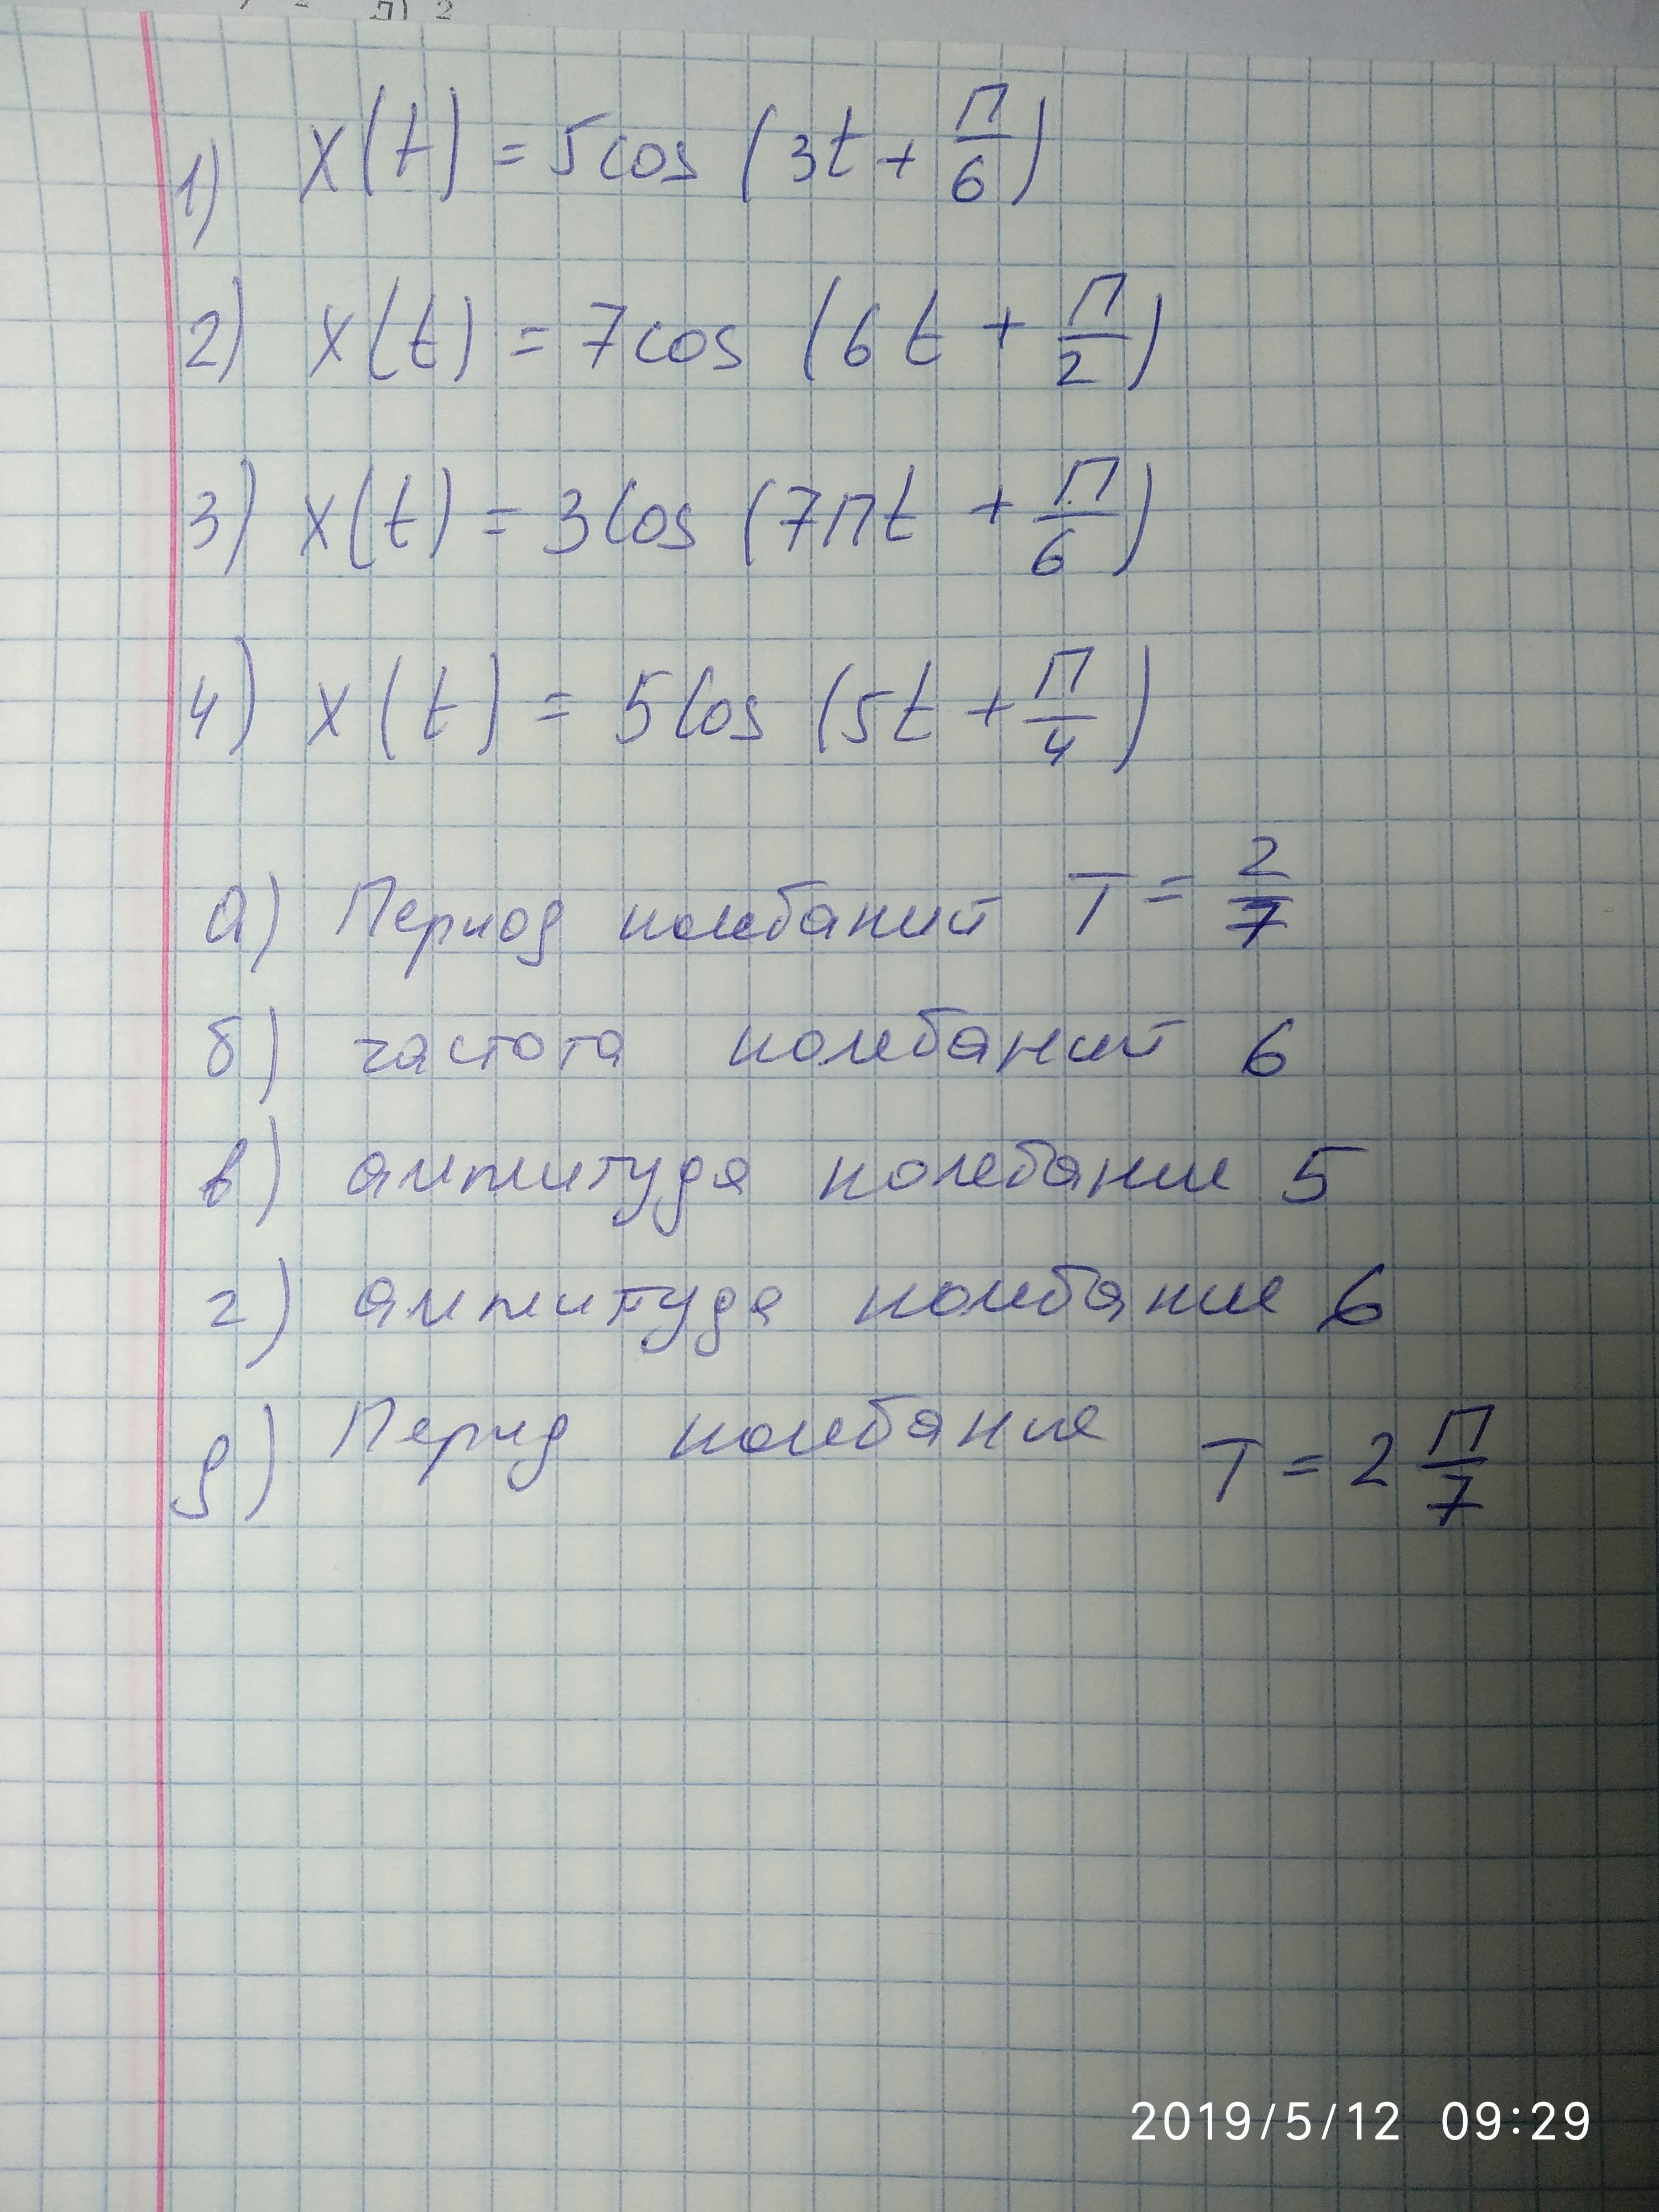 1) x(t) = 5cos (3t + П/6)
2) x(t) = 7cos (6t + П/2)
3) x(t) = 3cos (7пt + П/6)
4) x(t) = 5cos (5t + П/4)
а) Период колебаний T = 2/7
б) частота колебаний 6
в) амплитуда колебание 5
г) амплитуда колебание 6
д) Период колебание T = 2 П/7
2019/5/12 09:29